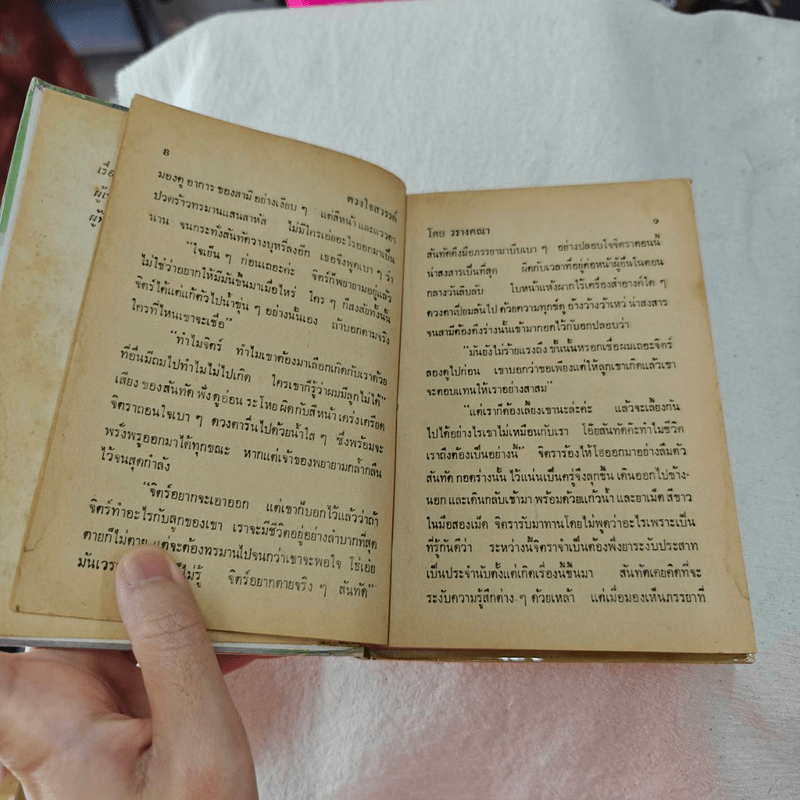 เรื่อ
ผู้เ
ผู้
๘
ดวงใจสวรรค์
มองดู อาการ ของสามี อย่างเงียบ ๆ แต่สีหน้า และแววตา
ปวดร้าวทรมานแสนสาหัส ไม่มีใครเอ่ยอะไรออกมาเป็น
นาน จนกระทั่งสันทัดวางบุหรี่ลงอีก เธอจึงพูดเบา ๆ ว่า
“ใจเย็น ๆ ก่อนเถอะค่ะ จิตร์ก็พยายามอยู่แล้ว
ไม่ใช่ว่ายายากให้มีมันขึ้นมาเมื่อไหร่ ใคร ๆ ก็สงสัยทั้งนั้น
จิตร์ได้แต่แก้ตัวไปน้ำขุ่น ๆ อย่างนั้นเอง ถ้าบอกตามจริง
ใครที่ไหนเขาจะเชื่อ”
“ทำไมจิตร์ ทำไมเขาต้องมาเลือกเกิดกับเราด้วย
ที่อื่นมีถมไปทำไมไม่ไปเกิด ใครเขาก็รู้ว่าผมมีลูกไม่ได้”
เสียง ของสันทัด ฟัง ดูอ่อน ระโหย ผิดกับสีหน้า เคร่งเครียด
จิตราถอนใจเบา ๆ ดวงตารื่นไปด้วยน้ำใส ๆ ซึ่งพร้อมจะ
พรั่งพรูออกมาได้ทุกขณะ หากแต่เจ้าของพยายามกล้ำกลืน
ไว้จนสุดกำลัง
“จิตร์อยากจะเอาออก แต่เขาก็บอกไว้แล้วว่าถ้า
จิตร์ทำอะไรกับลูกของเขา เราจะมีชีวิตอยู่อย่างลำบากที่สุด
ตายก็ไม่ตาย แต่จะต้องทรมานไปจนกว่าเขาจะพอใจ โธ่เอ๋ย
มันเวร ไม่รู้ จิตร์อยากตายจริง ๆ สันทัด”
โดย วรางคณา
๙
สันทัดดึงมือภรรยามาบีบเบา ๆ อย่างปลอบใจจิตราตอนนี้
น่าสงสารเป็นที่สุด ผิดกับเวลาที่อยู่ต่อหน้าผู้อื่นในตอน
กลางวันลิบลับ ใบหน้าแห้งผากไร้เครื่องสำอางค์ใด ๆ
ดวงตาเปี่ยมล้นไป ด้วยความทุกข์ดู อ้างว้างว้าเหว่ น่าสงสาร
จนสามีต้องดึงร่างนั้นเข้ามากอดไว้กับอกปลอบว่า
“มันยังไม่ร้ายแรงถึง ขั้นนั้นหรอกเชื่อผมเถอะจิตร์
ลองดูไปก่อน เขาบอกว่าขอเพียงแต่ให้ลูกเขาเกิดแล้วเขา
จะตอบแทนให้เราอย่างสาสม”
“แต่เราก็ต้องเลี้ยงเขานะล่ะค่ะ แล้วจะเลี้ยงกัน
ไปได้อย่างไรเขาไม่เหมือนกับเรา โอ๊ยสันทัดค๊ะทำไมชีวิต
เราถึงต้องเป็นอย่างนี้” จิตราร้องไห้โฮออกมาอย่างลืมตัว
สันทัด กอดร่างนั้น ไว้แน่นเป็นครู่จึงลุกขึ้น เดินออกไปข้าง-
นอก และเดินกลับเข้ามา พร้อมด้วยแก้วน้ำ และยาเม็ด สีขาว
ในมือสองเม็ด จิตรารับมาทานโดยไม่พูดว่าอะไรเพราะเป็น
ที่รู้กันดีว่า ระหว่างนี้จิตราจำเป็นต้องพึ่งยาระงับประสาท
เป็นประจำนับตั้งแต่เกิดเรื่องนี้ขึ้นมา สันทัดเคยคิดที่จะ
ระงับความรู้สึกต่าง ๆ ด้วยเหล้า แต่เมื่อมองเห็นภรรยาที่